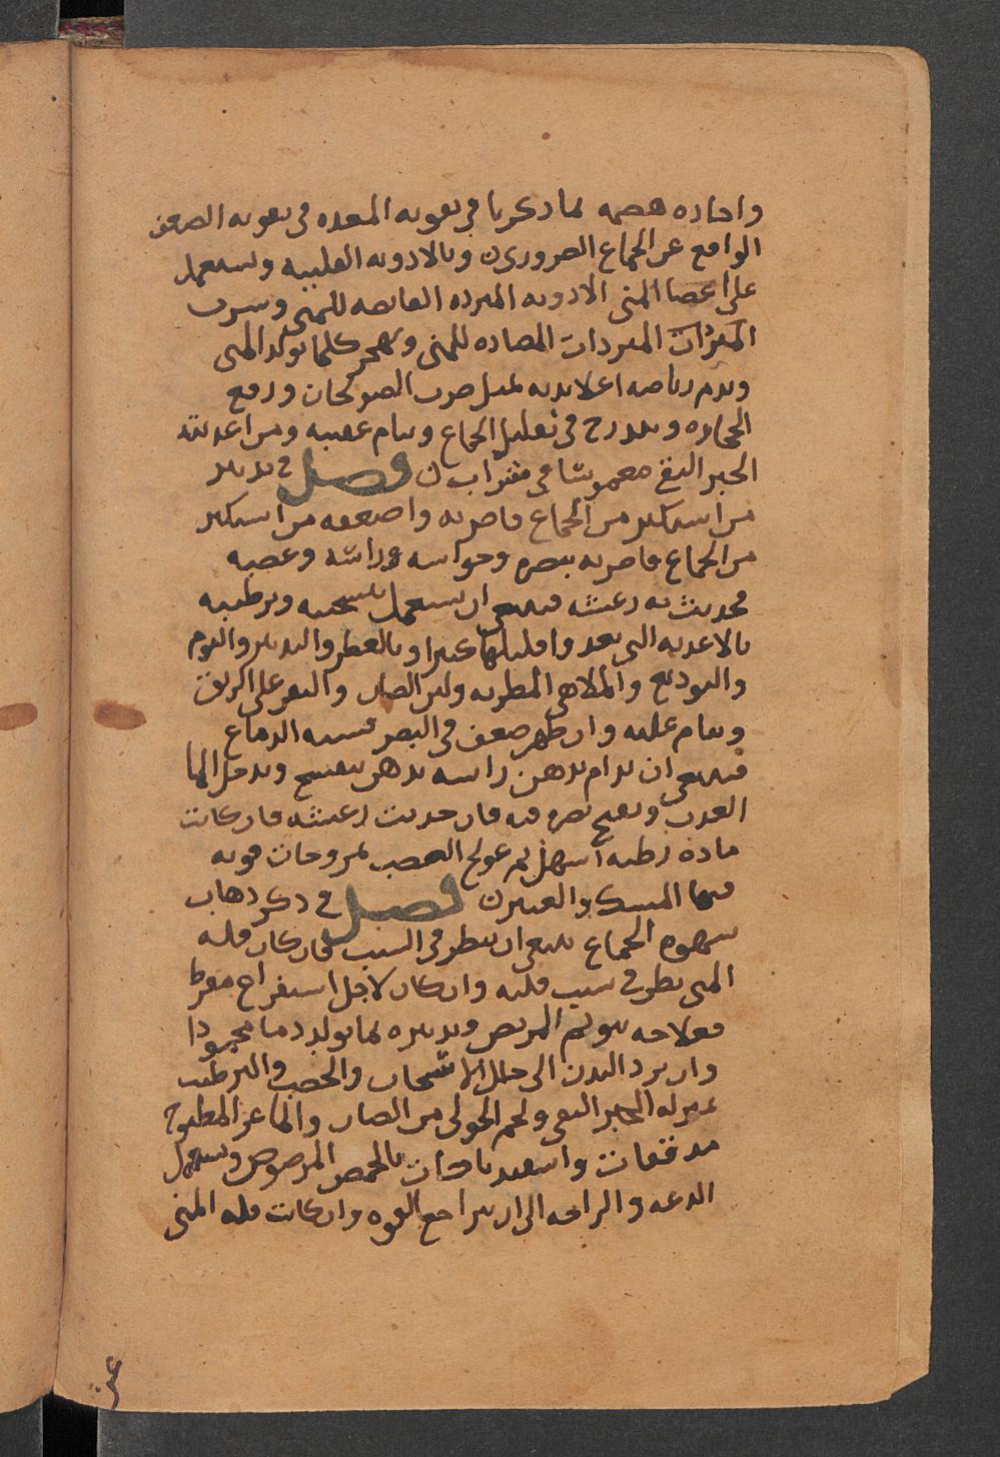 واجاده هضمه لما ذكرنا في تقويه المعده في تقويه الضعف
الواقع عن الجماع الضروري ن وبالادويه القلبيه ويستعمل
على اعضا المنى الادويه المبرده القابضه للمنى وشرب
المبردات المضاده للمنى ويهجر كلما يولد المنى
ويدم رياضه اعلا بدنه لمثل ضرب الصولجان ورفع
الحجاره ويتدرج في تقليل الجماع وينام عقيبه ومن اغذيته
الخبز النقي مغموسا في شراب ن فصل في تدبير
من استكثر من الجماع فاضر به واضعفه من استكثر
من الجماع فاضر به ببصره وحواسه وراسه وعصبه
فحديث به رعشه فينبغي ان يستعمل تسخينه وترطيبه
بالاغذيه التي تغذوا قليلها كثيرا وبالعطر والتدبير والنوم
والتوديع والملاهي المطربه ولبن الضان والبقر على الريق
وينام عليه وان ظهر ضعف في البصر فسببه الدماغ
فينبغي ان يدام بدهن راسه بدهن بنفسج ويدخل الما
العذب ويفتح بصره فيه فان حديث رعشه فان كانت
ماده رطبه اسهل ثم عولج العصب بمروحات قويه
فيها المسك والعنبر ن فصل في ذكر ذهاب
شهوه الجماع ينبغي ان ينظر في السبب فان كان قله
المنى نظر في سبب قلته وان كان لاجل استفراغ مفرط
فعلاجه تنويم المريض وتدبيره لما يولد دما محمودا
وان برد البدن الى حلل الاسخان والخصب والترطيب
بمنزله الخبز النقي ولحم الحولي من الضان والماعز المطبوخ
مدققات واسفيدباجات بالحمص المرضوض ويستعمل
الدعه والراحه الى ان يتراجع القوه وان كانت قله المنى
عن